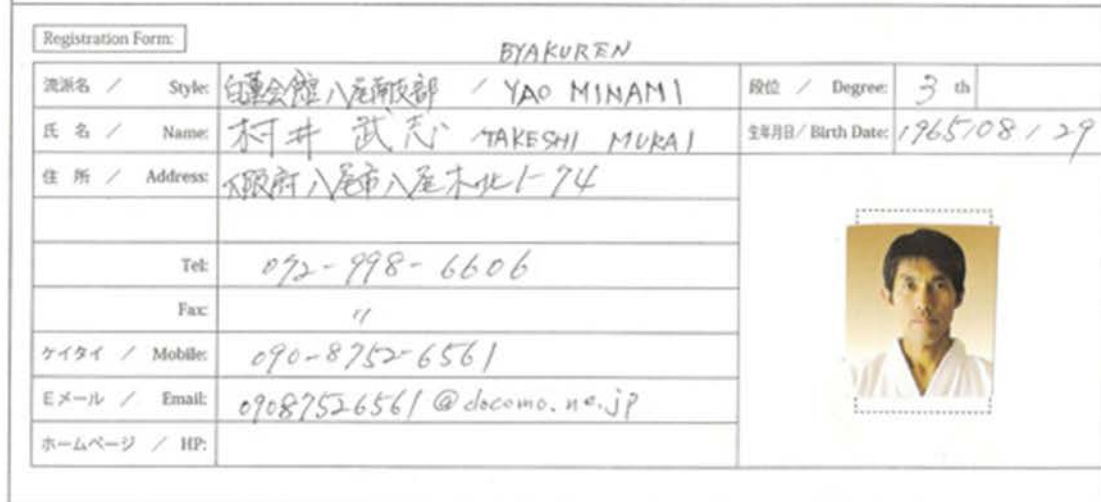 Registration Form:
BYAKUREN
流派名 / Style: 白蓮会館八尾南支部 / YAO MINAMI
段位 / Degree: 3 th
氏 名 / Name: 村井 武志 /TAKESHI MURAI
生年月日/ Birth Date: 1965/08/29
住 所 / Address: 大阪府八尾市八尾木北1-74
Tel: 072-998-6606
Fax: 〃
ケイタイ / Mobile: 090-8752-6561
Eメール / Email: 09087526561@docomo.ne.jp
ホームページ / HP: